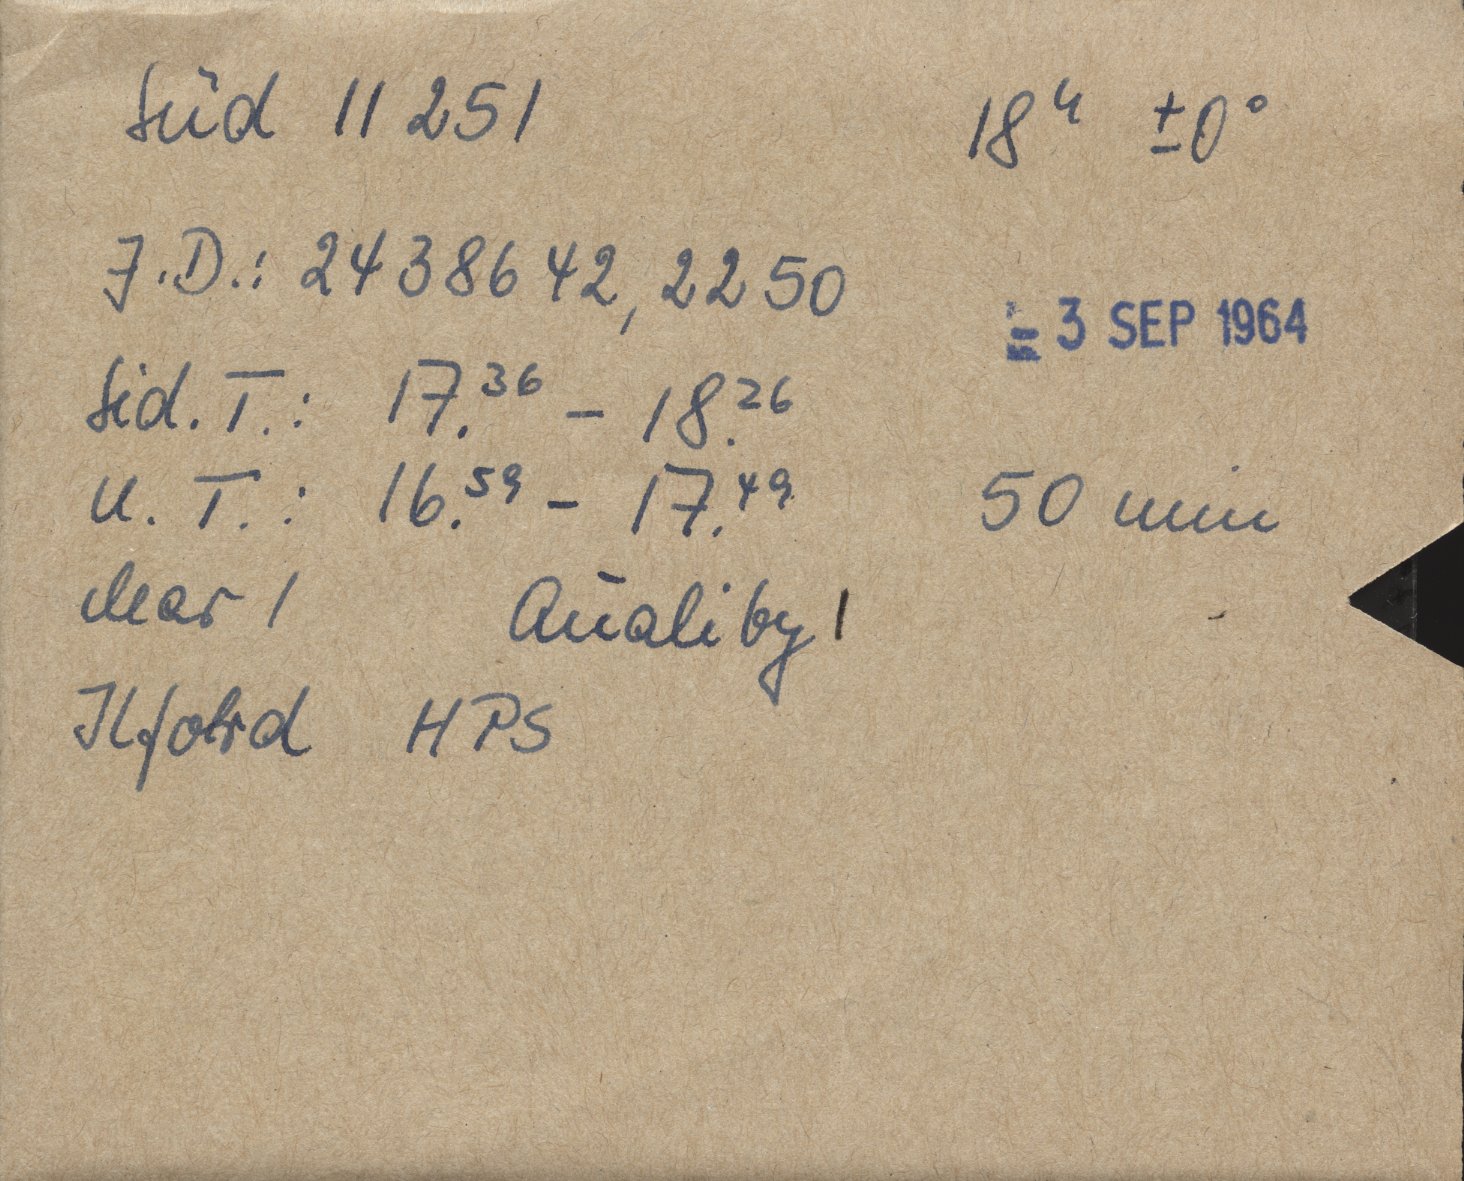 Süd 11 251 18ʰ ±0°
J.D.: 2438642,2250
3 SEP 1964
Sid. T.: 17.³⁶ – 18.²⁶
U. T.: 16.⁵⁹ – 17.⁴⁹ 50 min
clear 1 Quality 1
Ilford HPS